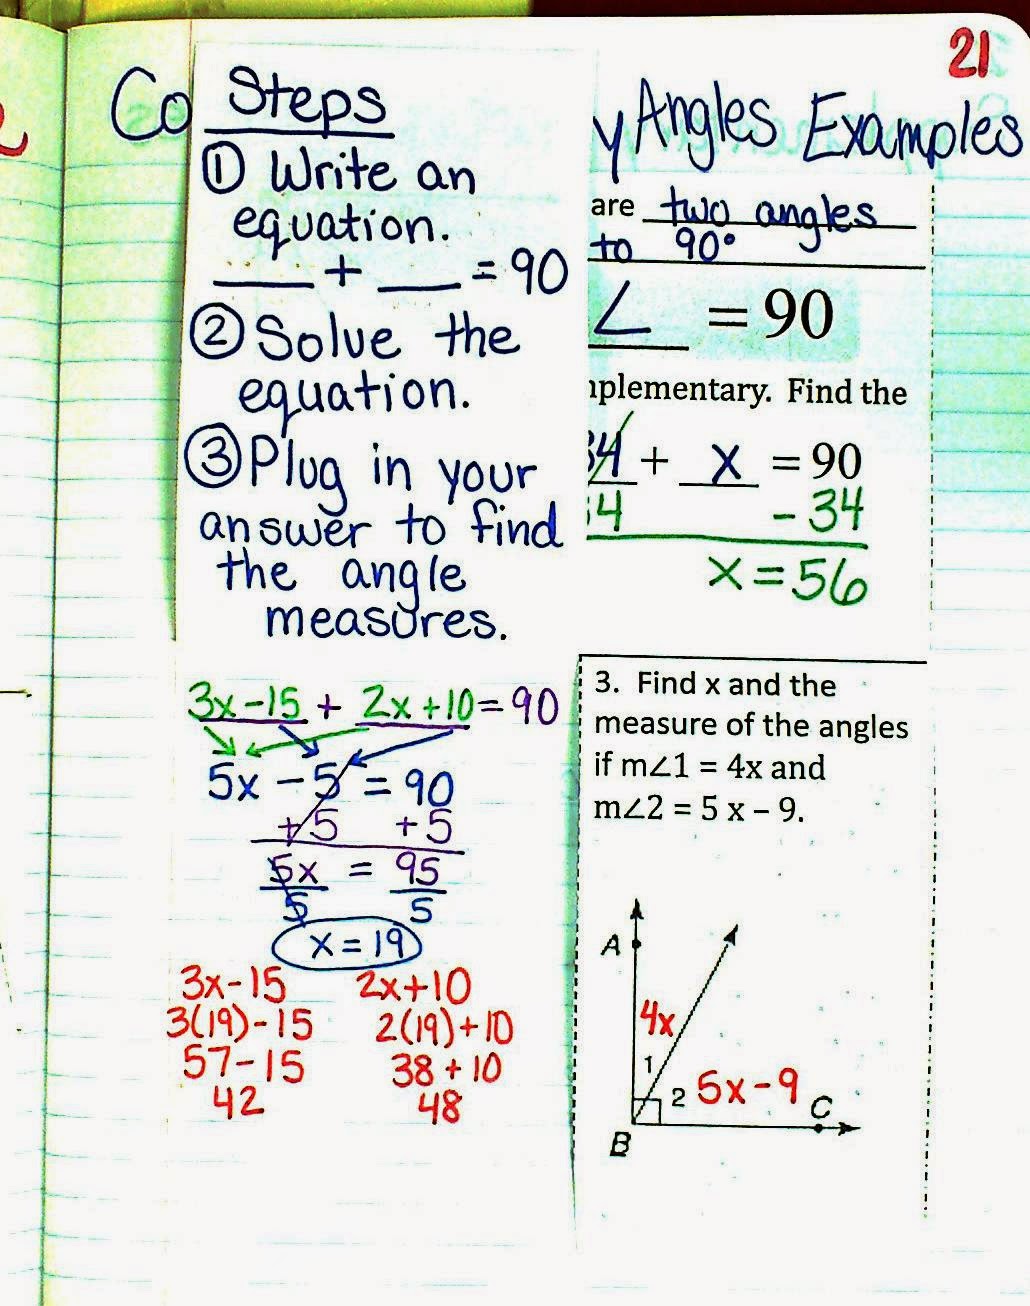 21
Co
Steps
y Angles Examples
① Write an
equation.
___ + ___ = 90
② Solve the
equation.
③ Plug in your
answer to find
the angle
measures.
are two angles
to 90°
∠ = 90
mplementary. Find the
34 + x = 90
34 - 34
x = 56
3x-15 + 2x+10 = 90
5x - 5 = 90
+5 +5
5x = 95
5 5
x = 19
3x-15 2x+10
3(19)-15 2(19)+10
57-15 38+10
42 48
3. Find x and the
measure of the angles
if m∠1 = 4x and
m∠2 = 5 x – 9.
A
4x
1
2 5x-9
C
B